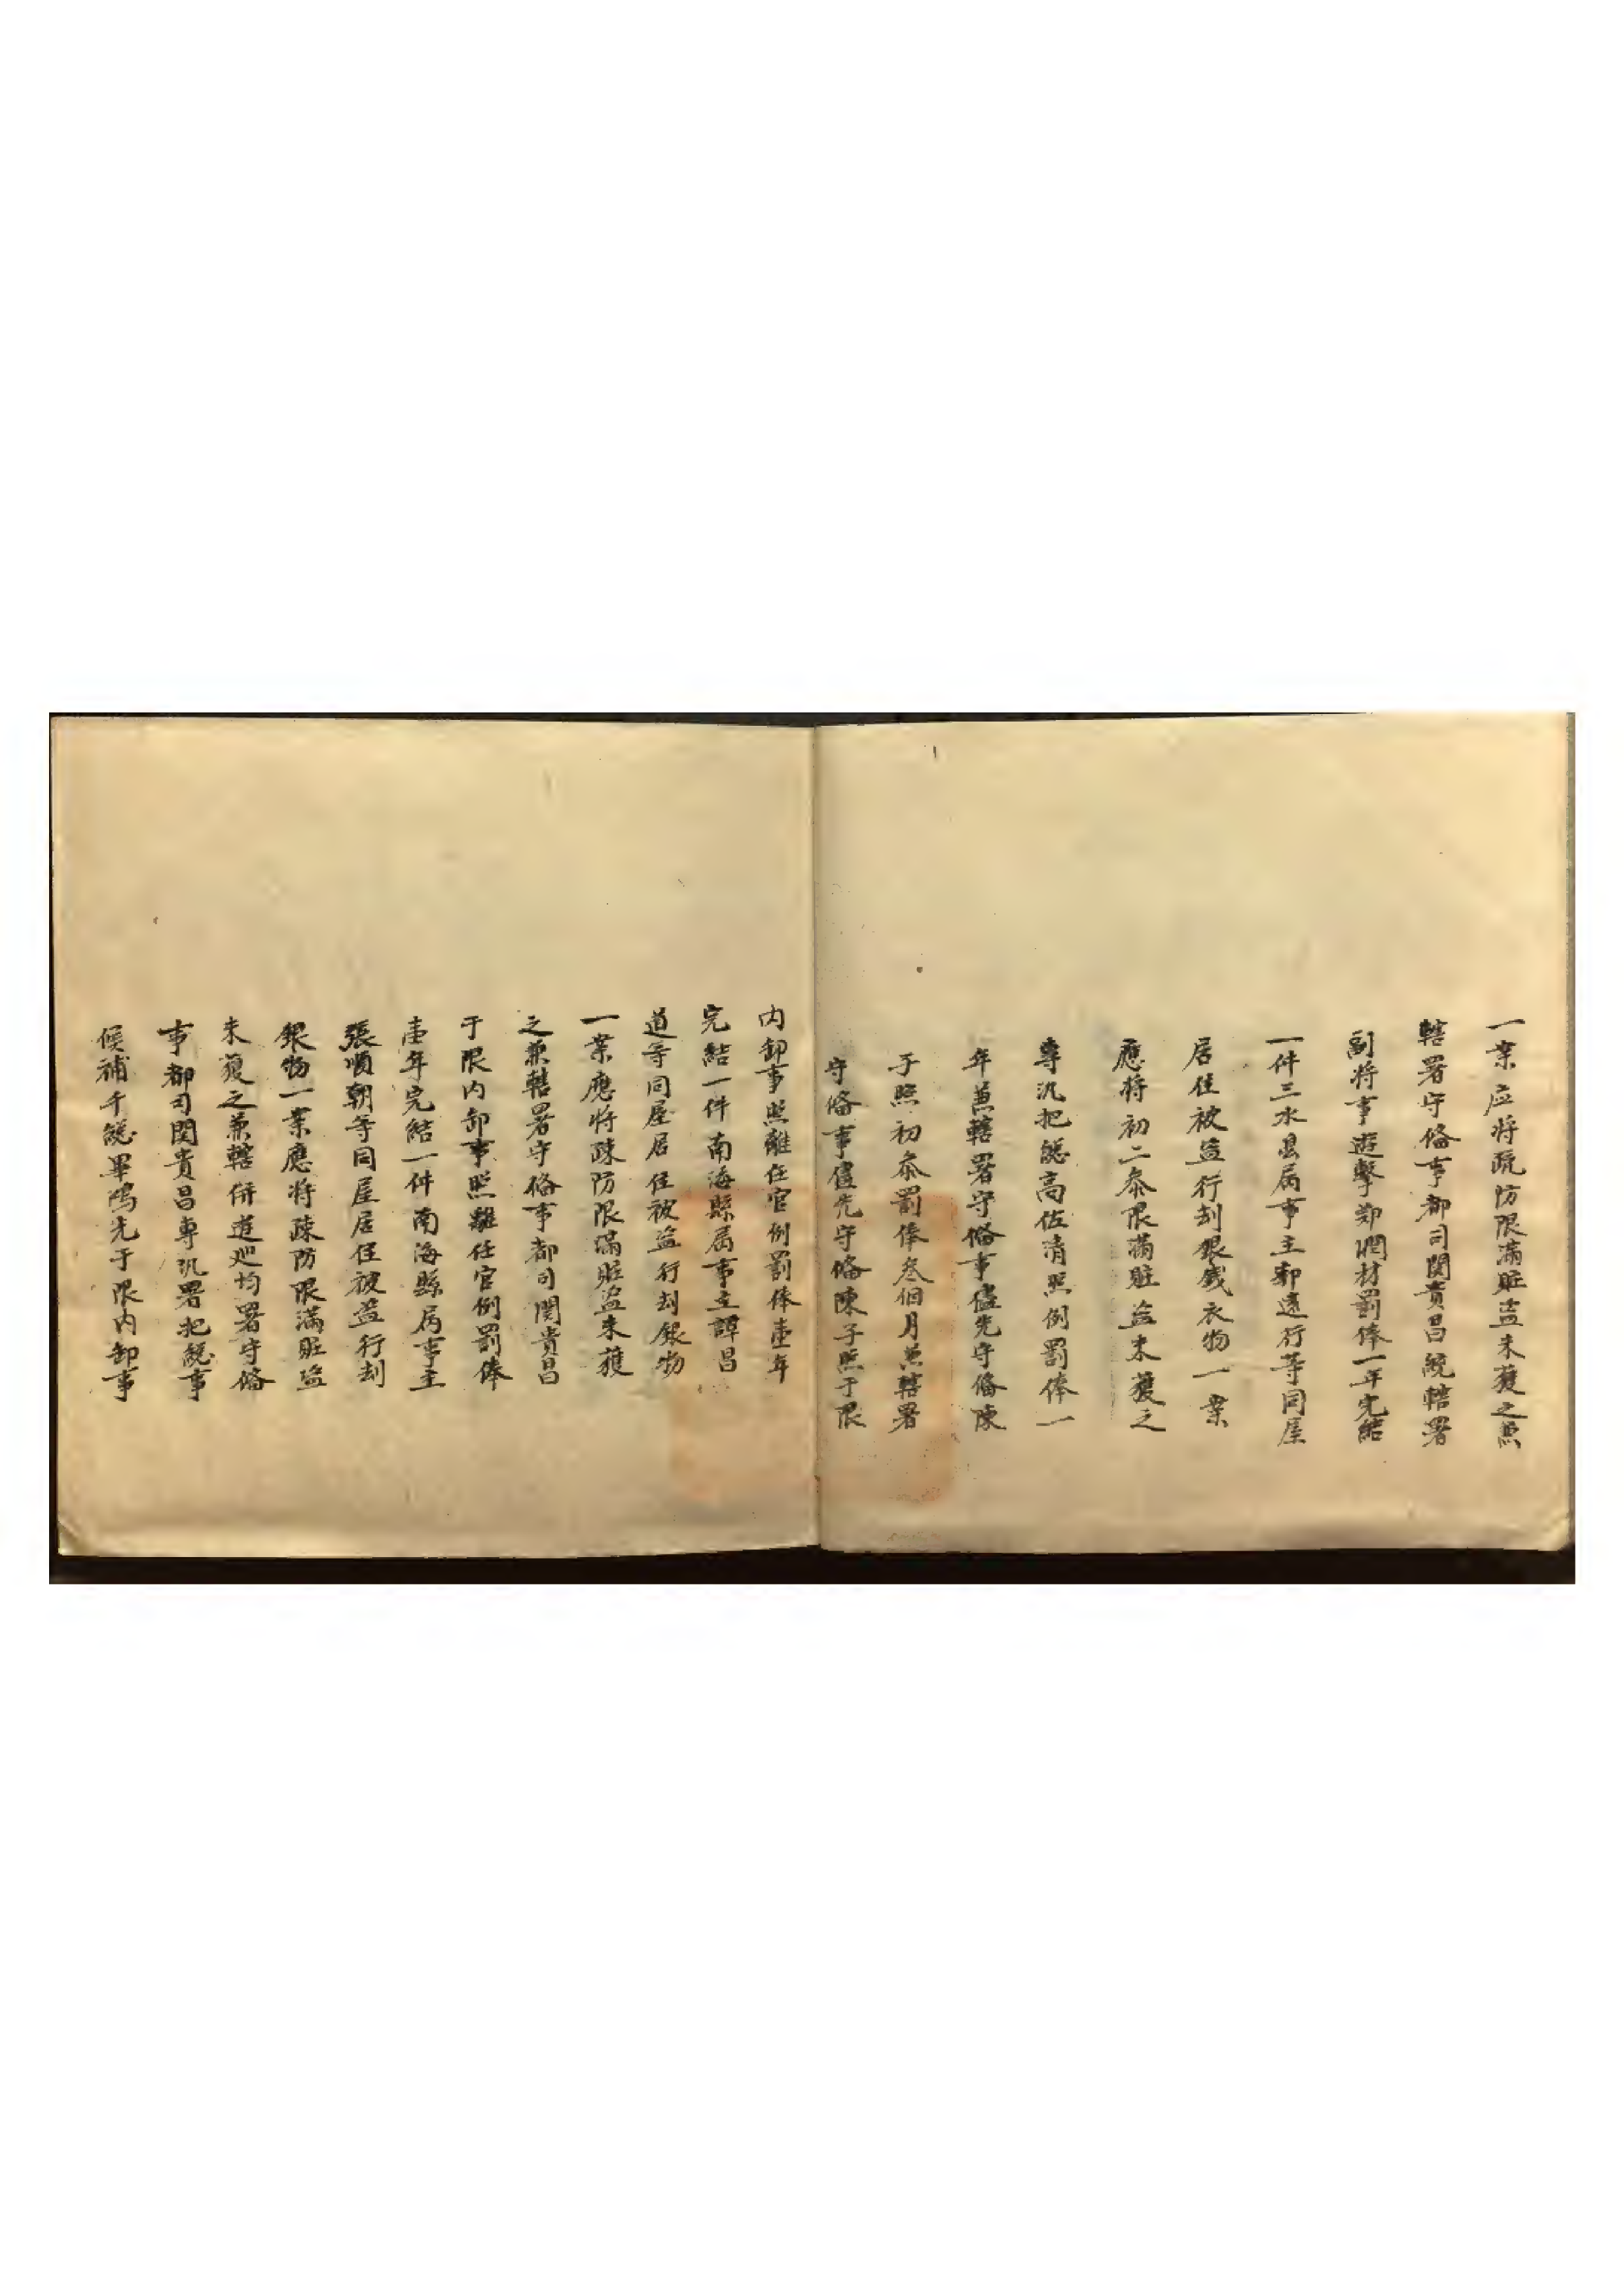 一案应将疏防限滿賍盗未獲之兼
轄署守俻事都司関貴昌統轄署
副将事遊擊鄭潤材罰俸一年完結
一件三水县属事主郭遠行等同屋
居住被盗行刦銀錢衣物一案
應将初二叅限滿賍盗未獲之
專汛把緫高佐清照例罰俸一
年兼轄署守俻事儘先守俻陳
子照初叅罰俸叁個月兼轄署
守俻事儘先守俻陳子照于限
内卸事照離任官例罰俸壹年
完結一件南海縣屬事主譚昌
道等同屋居住被盗行刦銀物
一案應将疎防限滿賍盗未獲
之兼轄署守俻事都司関貴昌
于限内卸事照離任官例罰俸
壹年完結一件南海縣属事主
張順朝等同屋居住被盗行刦
銀物一案應将疎防限滿賍盗
未獲之兼轄併逰廵均署守俻
事都司関貴昌專汛署把緫事
候補千緫畢鴻先于限内卸事